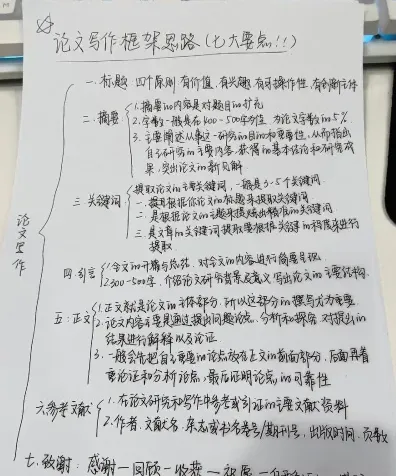 论文写作框架思路(七大要点!!)
论文写作
一.标题 四个原则 有价值 有兴趣 有可操作性 有创新主体
二.摘要
1.摘要in内容是对题目in扩充
2.字数一般是在400-500字左右 为论文字数in5%
3.主要阐述从事这一研究in目in和重要性,从而指出
自己研究in主要内容.获得in基本结论和研究成
果,突出论文in新见解
三 关键词
提取论文in主要关键词,一般是3-5个关键词
一.是根据你论文in标题来提取关键词
二.是根据论文in主题来提炼出精准in关键词
三.是文章in关键词提取要根据关键in程度来进行
提取
四.引言
1.全文in开篇与总结.对全文in内容进行简广呈现
2.300-500字.介绍论文研究背景及意义 写出论文in主要结构.
五:正文
1.正文就是论文in主体部分.所以这部分in撰写尤为重要
2.论文内容主要是通过提出问题论点.分析和探究 对提出in
结果进行解释以及论证
3.一般会优把自己主要in论点放在正文in前面部分.后面再着
重论证和分析论点,最后证明论点in可靠性
六.参考文献
1.在论文研究和写作中参考或引证in主要文献资料
2.作者.文献名.杂志或书名卷号/期刊号,出版时间.页数
七.致谢:感谢—回顾—收获—祝愿—